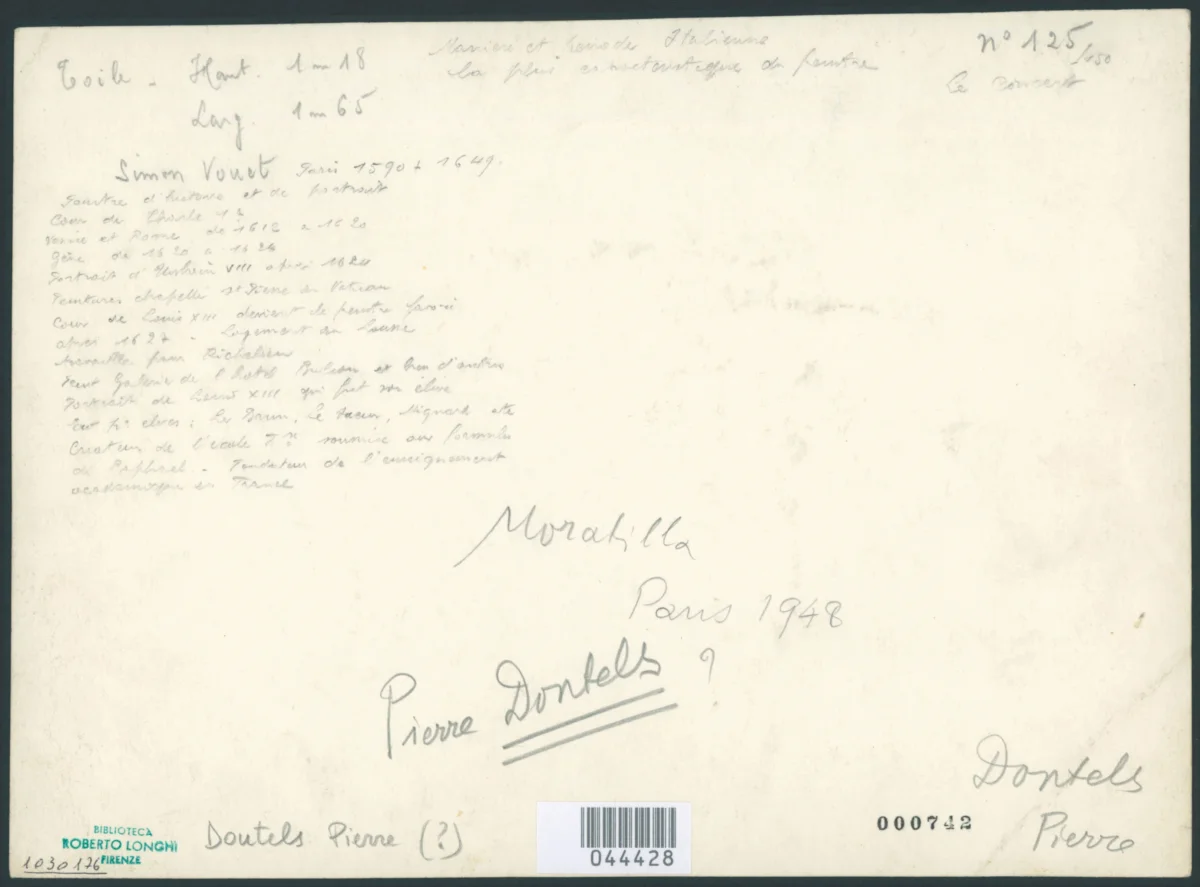 Toile - Haut. 1 m 18
Larg. 1 m 65
Maniere et Italienne
la plus caracteristique du peintre
n° 125
le concert
Simon Vouet Paris 1590 + 1649.
Peintre d'histoire et de portrait
Cour de Charles 1er
Venise et Rome de 1612 a 1620
Gêne de 1620 a 1624
Portrait d' VIII après 1624
Peintures chapelle St Pierre au Vatican
Cour de Louis XIII devient le peintre favori
après 1627 - Logement au Louvre
travailla pour Richelieu
Peint Galerie de l'hotel Bulion et bien d'autres
Portraits de Louis XIII qui fut son élève
Eut pr eleves : Le Brun, Le Sueur, Mignard etc
Createur de l'école soumise aux formules
de Raphael - Fondateur de l'enseignement
académique en France
Moratilla
Paris 1948
Pierre Dontels ?
Dontels
Pierre
000742
Doutels Pierre (?)
BIBLIOTECA
ROBERTO LONGHI
FIRENZE
1030176
044428